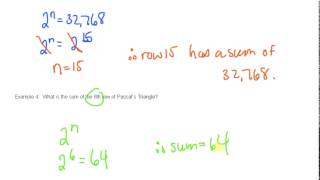 2ⁿ = 32,768
2ⁿ = 2¹⁵
n = 15
∴ row 15 has a sum of
32,768.
Example 4: What is the sum of the 6th row of Pascal's Triangle?
2ⁿ
2⁶ = 64
∴ sum = 64